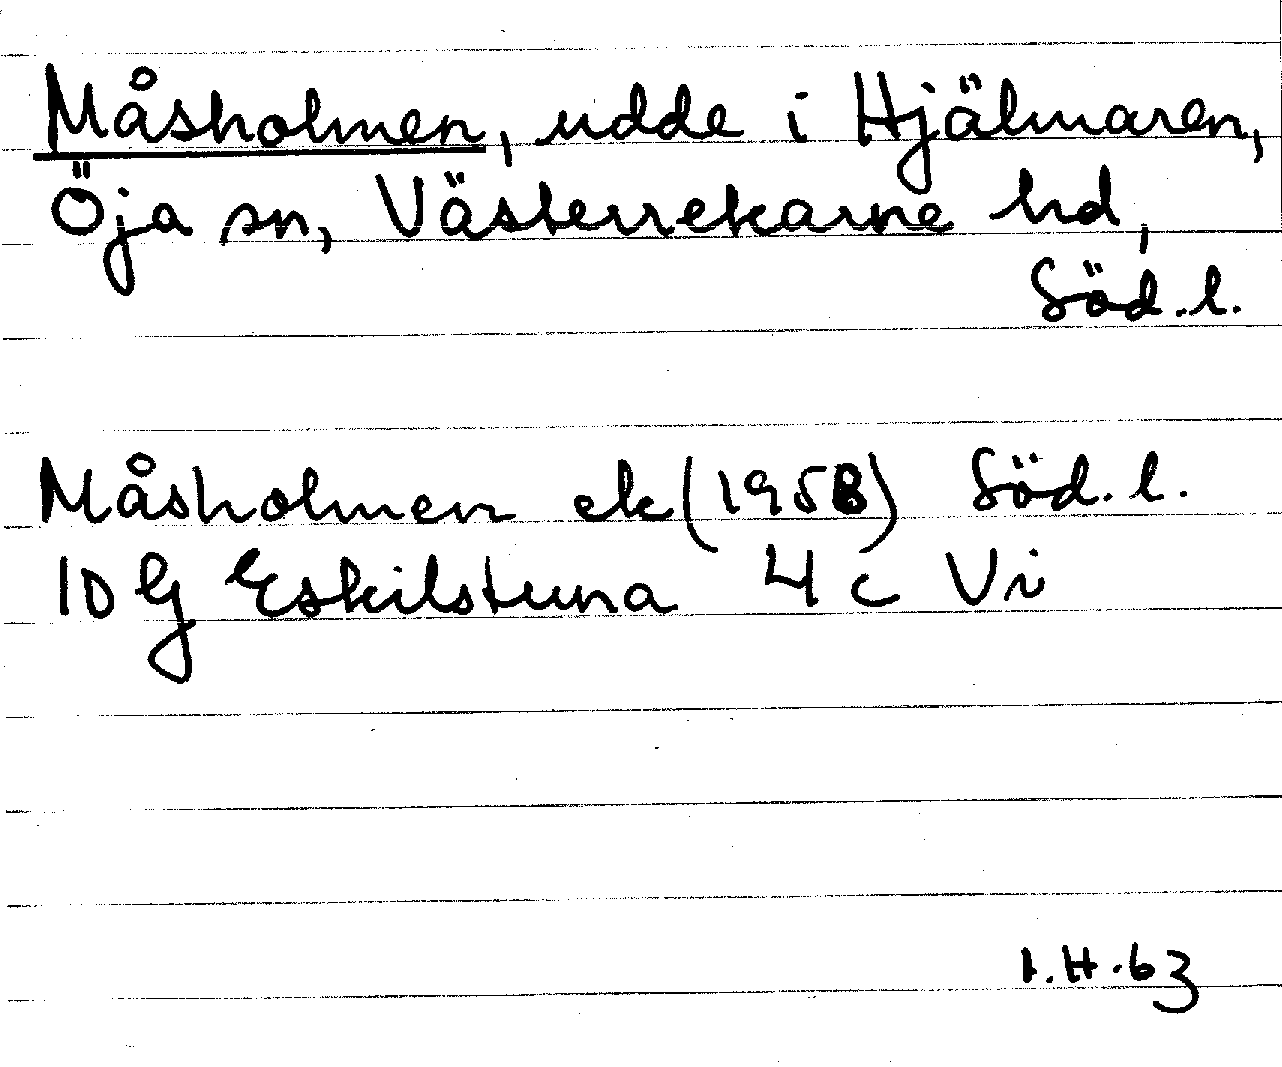 Måsholmen, udde i Hjälmaren,
Öja sn, Västerrekarne hd,
Söd.l.
Måsholmen ek (1958) Söd.l.
10 G Eskilstuna 4 c Vi
I.H.63